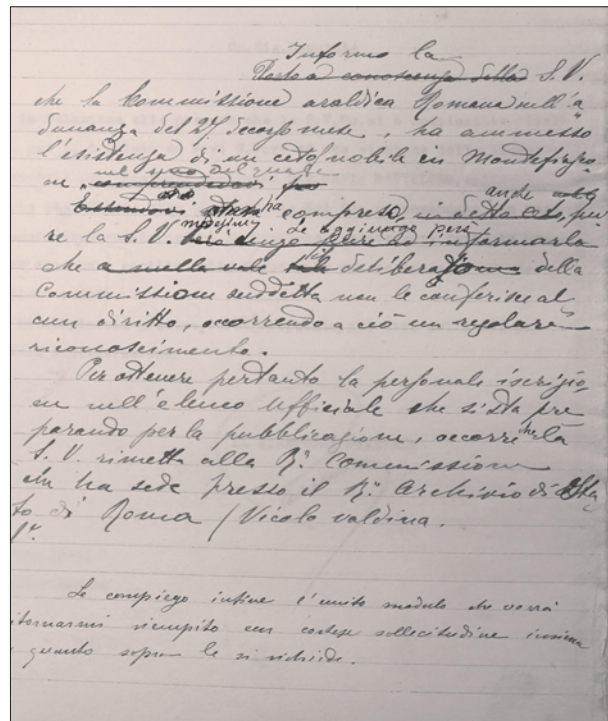 Informo la
Porto a conoscenza della S. V.
che la Commissione araldica Romana nell'a
dunanza del 27 decorso mese, ha ammesso
l'esistenza di un ceto nobile in Montefiasco
ne
nel
comprendendovi
anche
compresa, in detto ceto, pu
re la S. V. Le aggiungo però
tengo informarla
che a nulla vale deliberazione della
Commissione suddetta non le conferisce al
cun diritto, occorrendo a ciò un regolare
riconoscimento.
Per ottenere pertanto la personale iscrizio
ne nell'elenco Ufficiale che si sta pre
parando per la pubblicazione, occorre che la
S. V. rimetta alla R.a Commissione
che ha sede presso il R.o Archivio di Sta
to di Roma (Vicolo Valdina.
Le compiego infine l'unito modulo che vorrà
ritornarmi riempito con cortese sollecitudine insieme
a quanto sopra le si richiede.